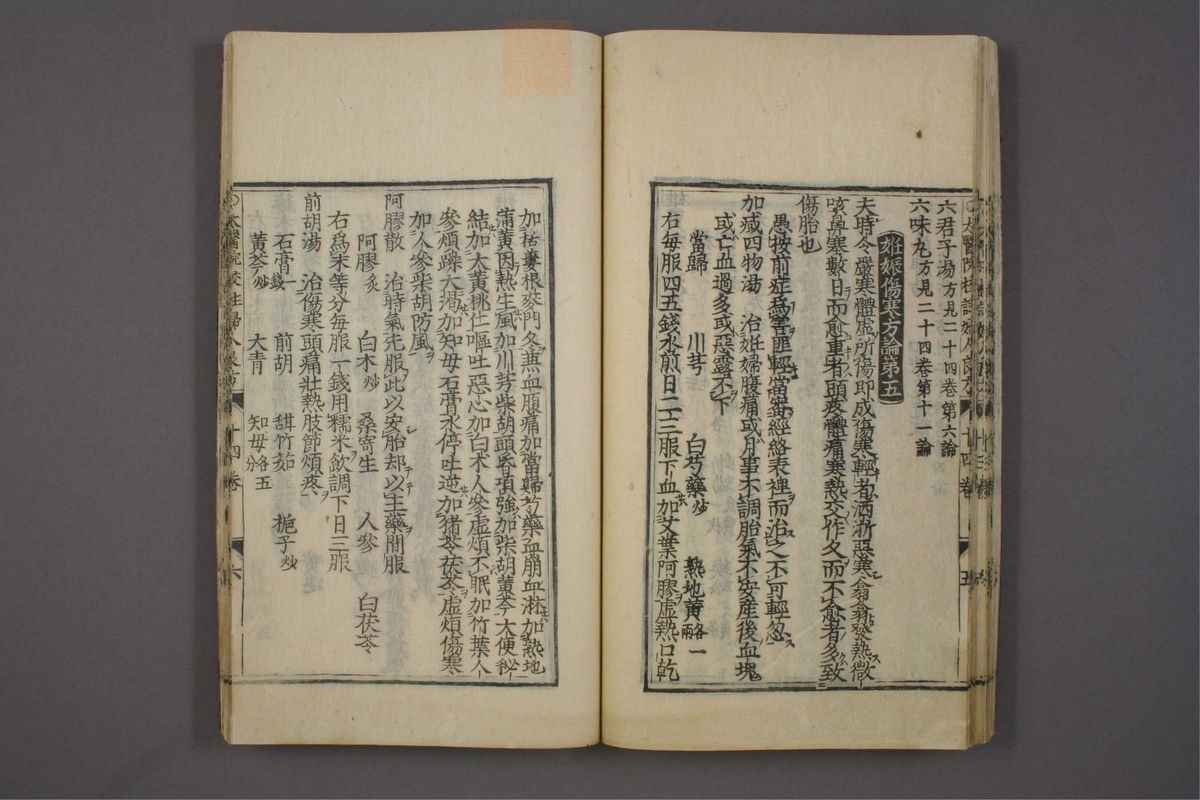 六君子湯方見二十四卷第六論
六味丸方見二十四卷第十一論
妊娠傷寒方論第五
夫時令嚴寒體虛所傷即成傷寒輕者洒淅惡寒翕翕發熱微
咳鼻寒數日而愈重者頭疼體痛寒熱交作久而不愈者多致
傷胎也
愚按前症爲害匪輕當審經絡表裡而治之不可輕忽
加减四物湯 治妊婦腹痛或月事不調胎氣不安産後血塊
或亡血過多或惡露不下
當歸 川芎 白芍藥炒 熟地黄各一兩
右每服四五錢水煎日二三服下血加艾葉阿膠虛熱口乾
加栝蔞根麥門冬無血腹痛加當歸芍藥血崩血淋加熟地
蒲黄因熱生風加川芎柴胡頭昏項強加柴胡黄芩大便秘
結加大黄桃仁嘔吐惡心加白木人參虛煩不眠加竹葉人
參煩躁大渴加知母石膏水停吐逆加猪苓茯苓虛煩傷寒
加人參柴胡防風
阿膠散 治時氣先服此以安胎却以主藥間服
阿膠炙 白木炒 桑寄生 人參 白茯苓
右爲末等分每服一錢用糯米飲調下日三服
前胡湯 治傷寒頭痛壯熱肢節煩疼
石膏一錢 前胡 甜竹茹 梔子炒
黄芩炒 大青 知母各五分
太醫院校註婦人良方 十四卷 六